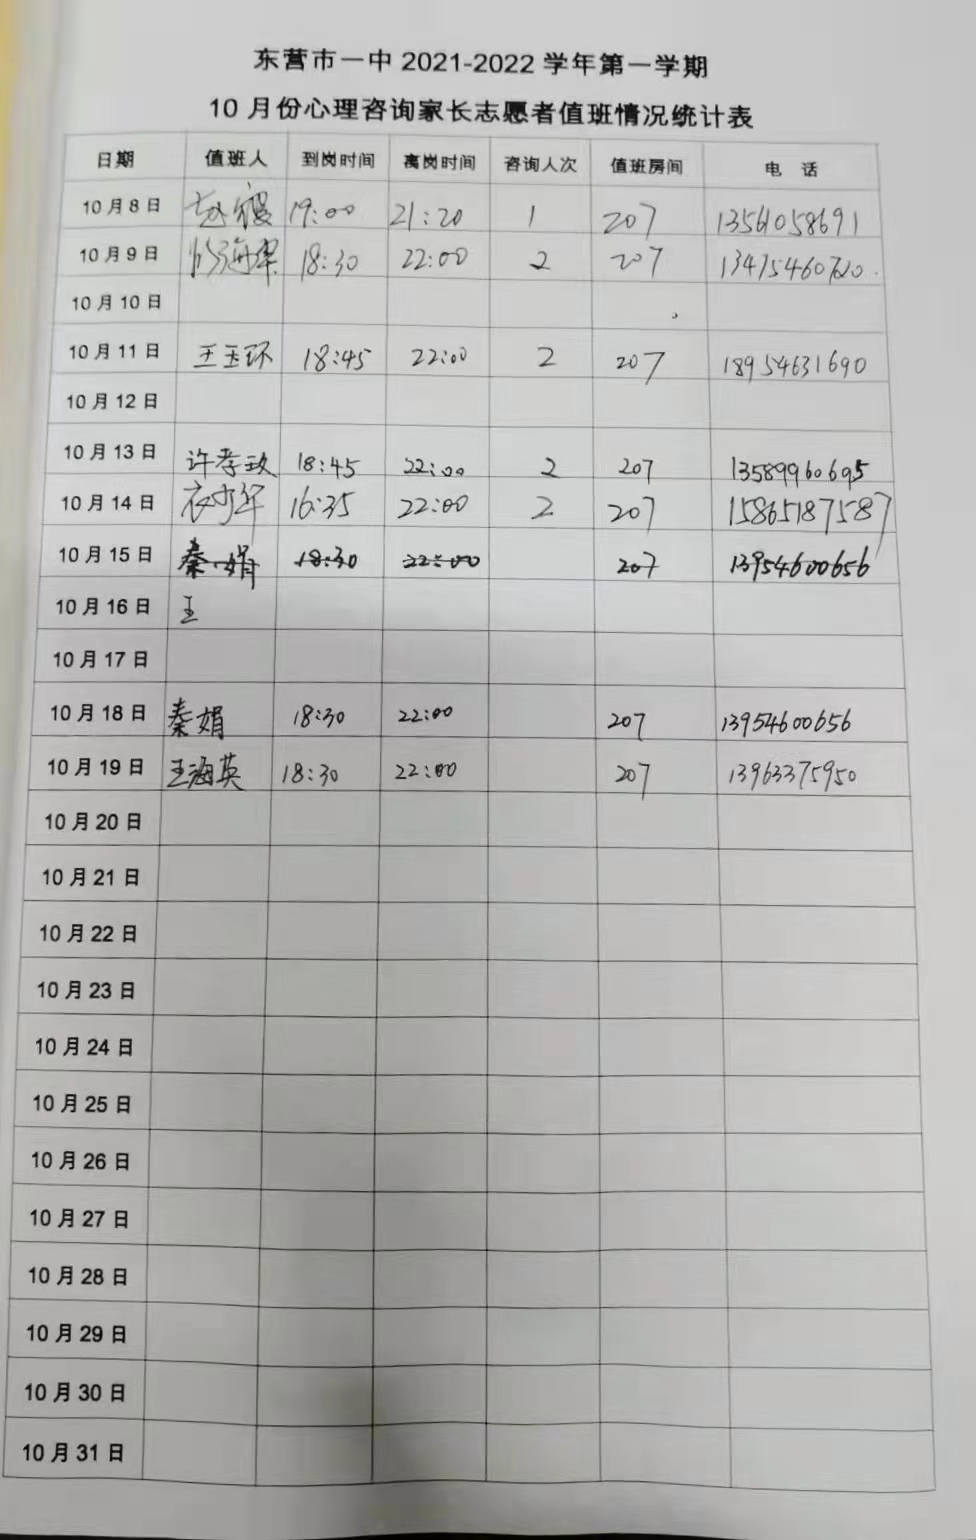 东营市一中 2021-2022 学年第一学期
10 月份心理咨询家长志愿者值班情况统计表
日期 值班人 到岗时间 离岗时间 咨询人次 值班房间 电 话
10 月 8 日 19:00 21:20 1 207 13561058691
10 月 9 日 18:30 22:00 2 207
10 月 10 日
10 月 11 日 王玉环 18:45 22:00 2 207 18954631690
10 月 12 日
10 月 13 日 许孝玫 18:45 22:00 2 207 13589960695
10 月 14 日 衣少军 16:35 22:00 2 207 15865187587
10 月 15 日 秦娟 18:30 22:00 207 13954600656
10 月 16 日 王
10 月 17 日
10 月 18 日 秦娟 18:30 22:00 207 13954600656
10 月 19 日 王海英 18:30 22:00 207 13963375950
10 月 20 日
10 月 21 日
10 月 22 日
10 月 23 日
10 月 24 日
10 月 25 日
10 月 26 日
10 月 27 日
10 月 28 日
10 月 29 日
10 月 30 日
10 月 31 日